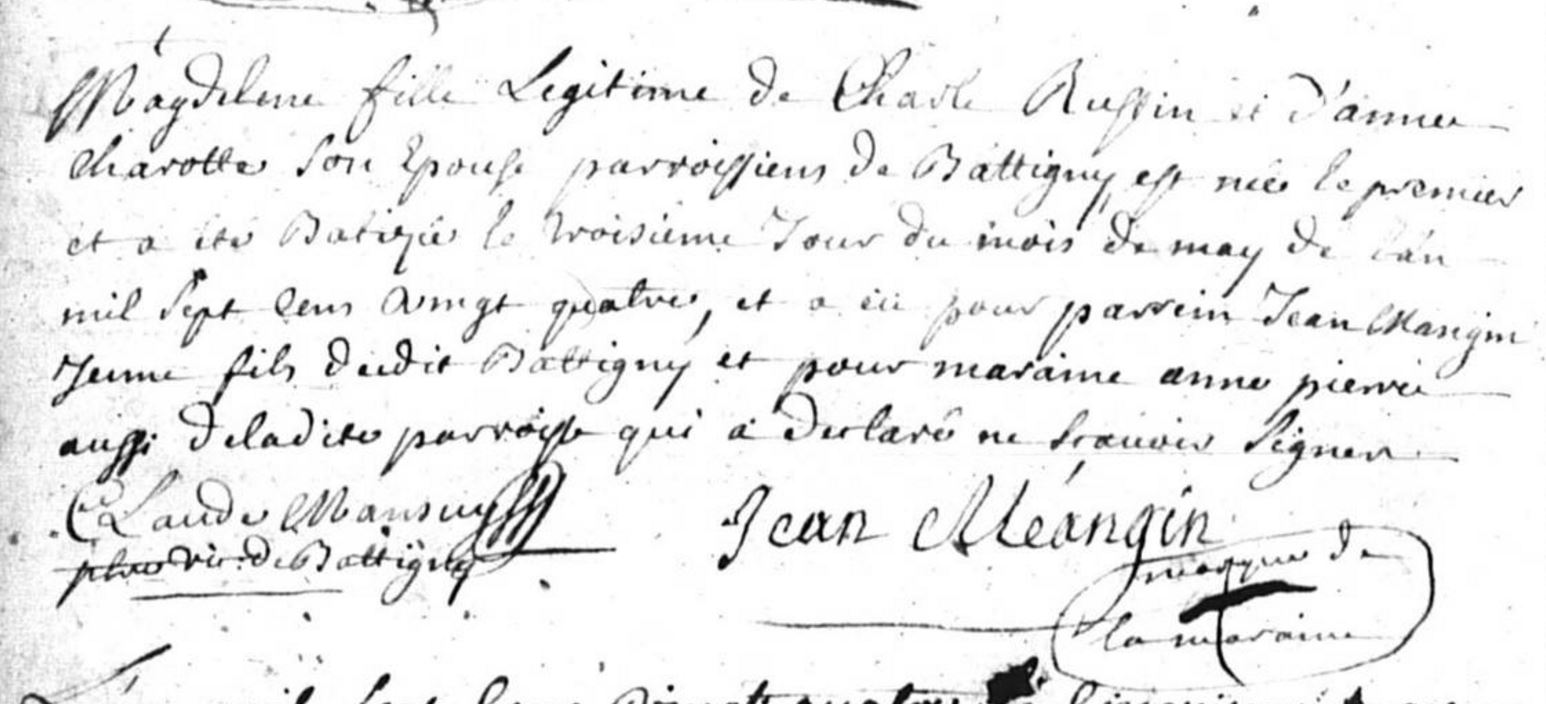 Magdelene fille Legitime de Charle Ruffin et d'anne
Charotte son Epouse parroissiens de Battigny est née le premier
et a été Batisée le troisième Jour du mois de may de l'an
mil sept cens vingt quatre, et a eü pour parrein Jean Mangin
Jeune fils dudit Battigny et pour maraine anne pierre
aussi de ladite parroisse qui a declaré ne scavoir signer
Claude Mansuy Jean Méangin
vic: de Battigny
marque de
la maraine
mil sept cens vingt quatre le